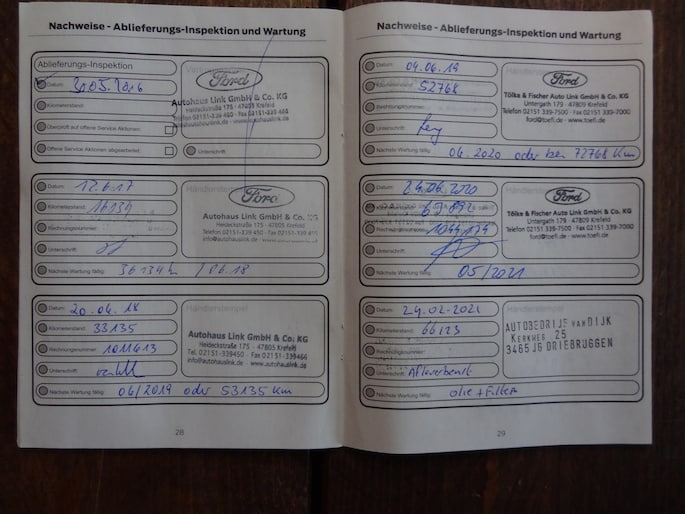 Nachweise - Ablieferungs-Inspektion und Wartung
Ablieferungs-Inspektion
Datum: 20.05.2016
Kilometerstand:
Überprüft auf offene Service Aktionen:
Offene Service Aktionen abgearbeitet:
Ford
Autohaus Link GmbH & Co. KG
Heideckstraße 175 · 47805 Krefeld
Telefon 02151-339 450 · Fax 02151-339 466
info@autohauslink.de · www.autohauslink.de
Unterschrift:
Datum: 12.6.17
Kilometerstand: 16134
Rechnungsnummer:
Unterschrift:
Händlerstempel
Ford
Autohaus Link GmbH & Co. KG
Heideckstraße 175 · 47805 Krefeld
Telefon 02151-339 450 · Fax 02151-339 466
info@autohauslink.de · www.autohauslink.de
Nächste Wartung fällig: 36134 / 06.18
Datum: 20.06.18
Kilometerstand: 33135
Rechnungsnummer: 1011613
Unterschrift:
Händlerstempel
Autohaus Link GmbH & Co. KG
Heideckstraße 175 · 47805 Krefeld
Tel. 02151-339450 · Fax 02151-339466
info@autohauslink.de · www.autohauslink.de
Nächste Wartung fällig: 06/2019 oder 53135 Km
28
Nachweise - Ablieferungs-Inspektion und Wartung
Datum: 04.06.19
Kilometerstand: 52768
Rechnungsnummer:
Unterschrift:
Händlerstempel
Ford
Tölke & Fischer Auto Link GmbH & Co. KG
Untergath 179 · 47805 Krefeld
Telefon 02151 339-7500 · Fax 02151 339-7000
ford@toefi.de · www.toefi.de
Nächste Wartung fällig: 06.2020 oder bei 72768 Km
Datum: 24.06.2020
Kilometerstand:
Rechnungsnummer:
Unterschrift:
Ford
Tölke & Fischer Auto Link GmbH & Co. KG
Untergath 179 · 47805 Krefeld
Telefon 02151 339-7500 · Fax 02151 339-7000
ford@toefi.de · www.toefi.de
Nächste Wartung fällig: 05/2021
Datum: 24-02-2021
Kilometerstand: 66123
Rechnungsnummer:
Unterschrift: Afleverbeurt
Händlerstempel
AUTOBEDRIJF VAN DIJK
KERKWEG 25
3465 JG DRIEBRUGGEN
Nächste Wartung fällig: olie + Filter
29